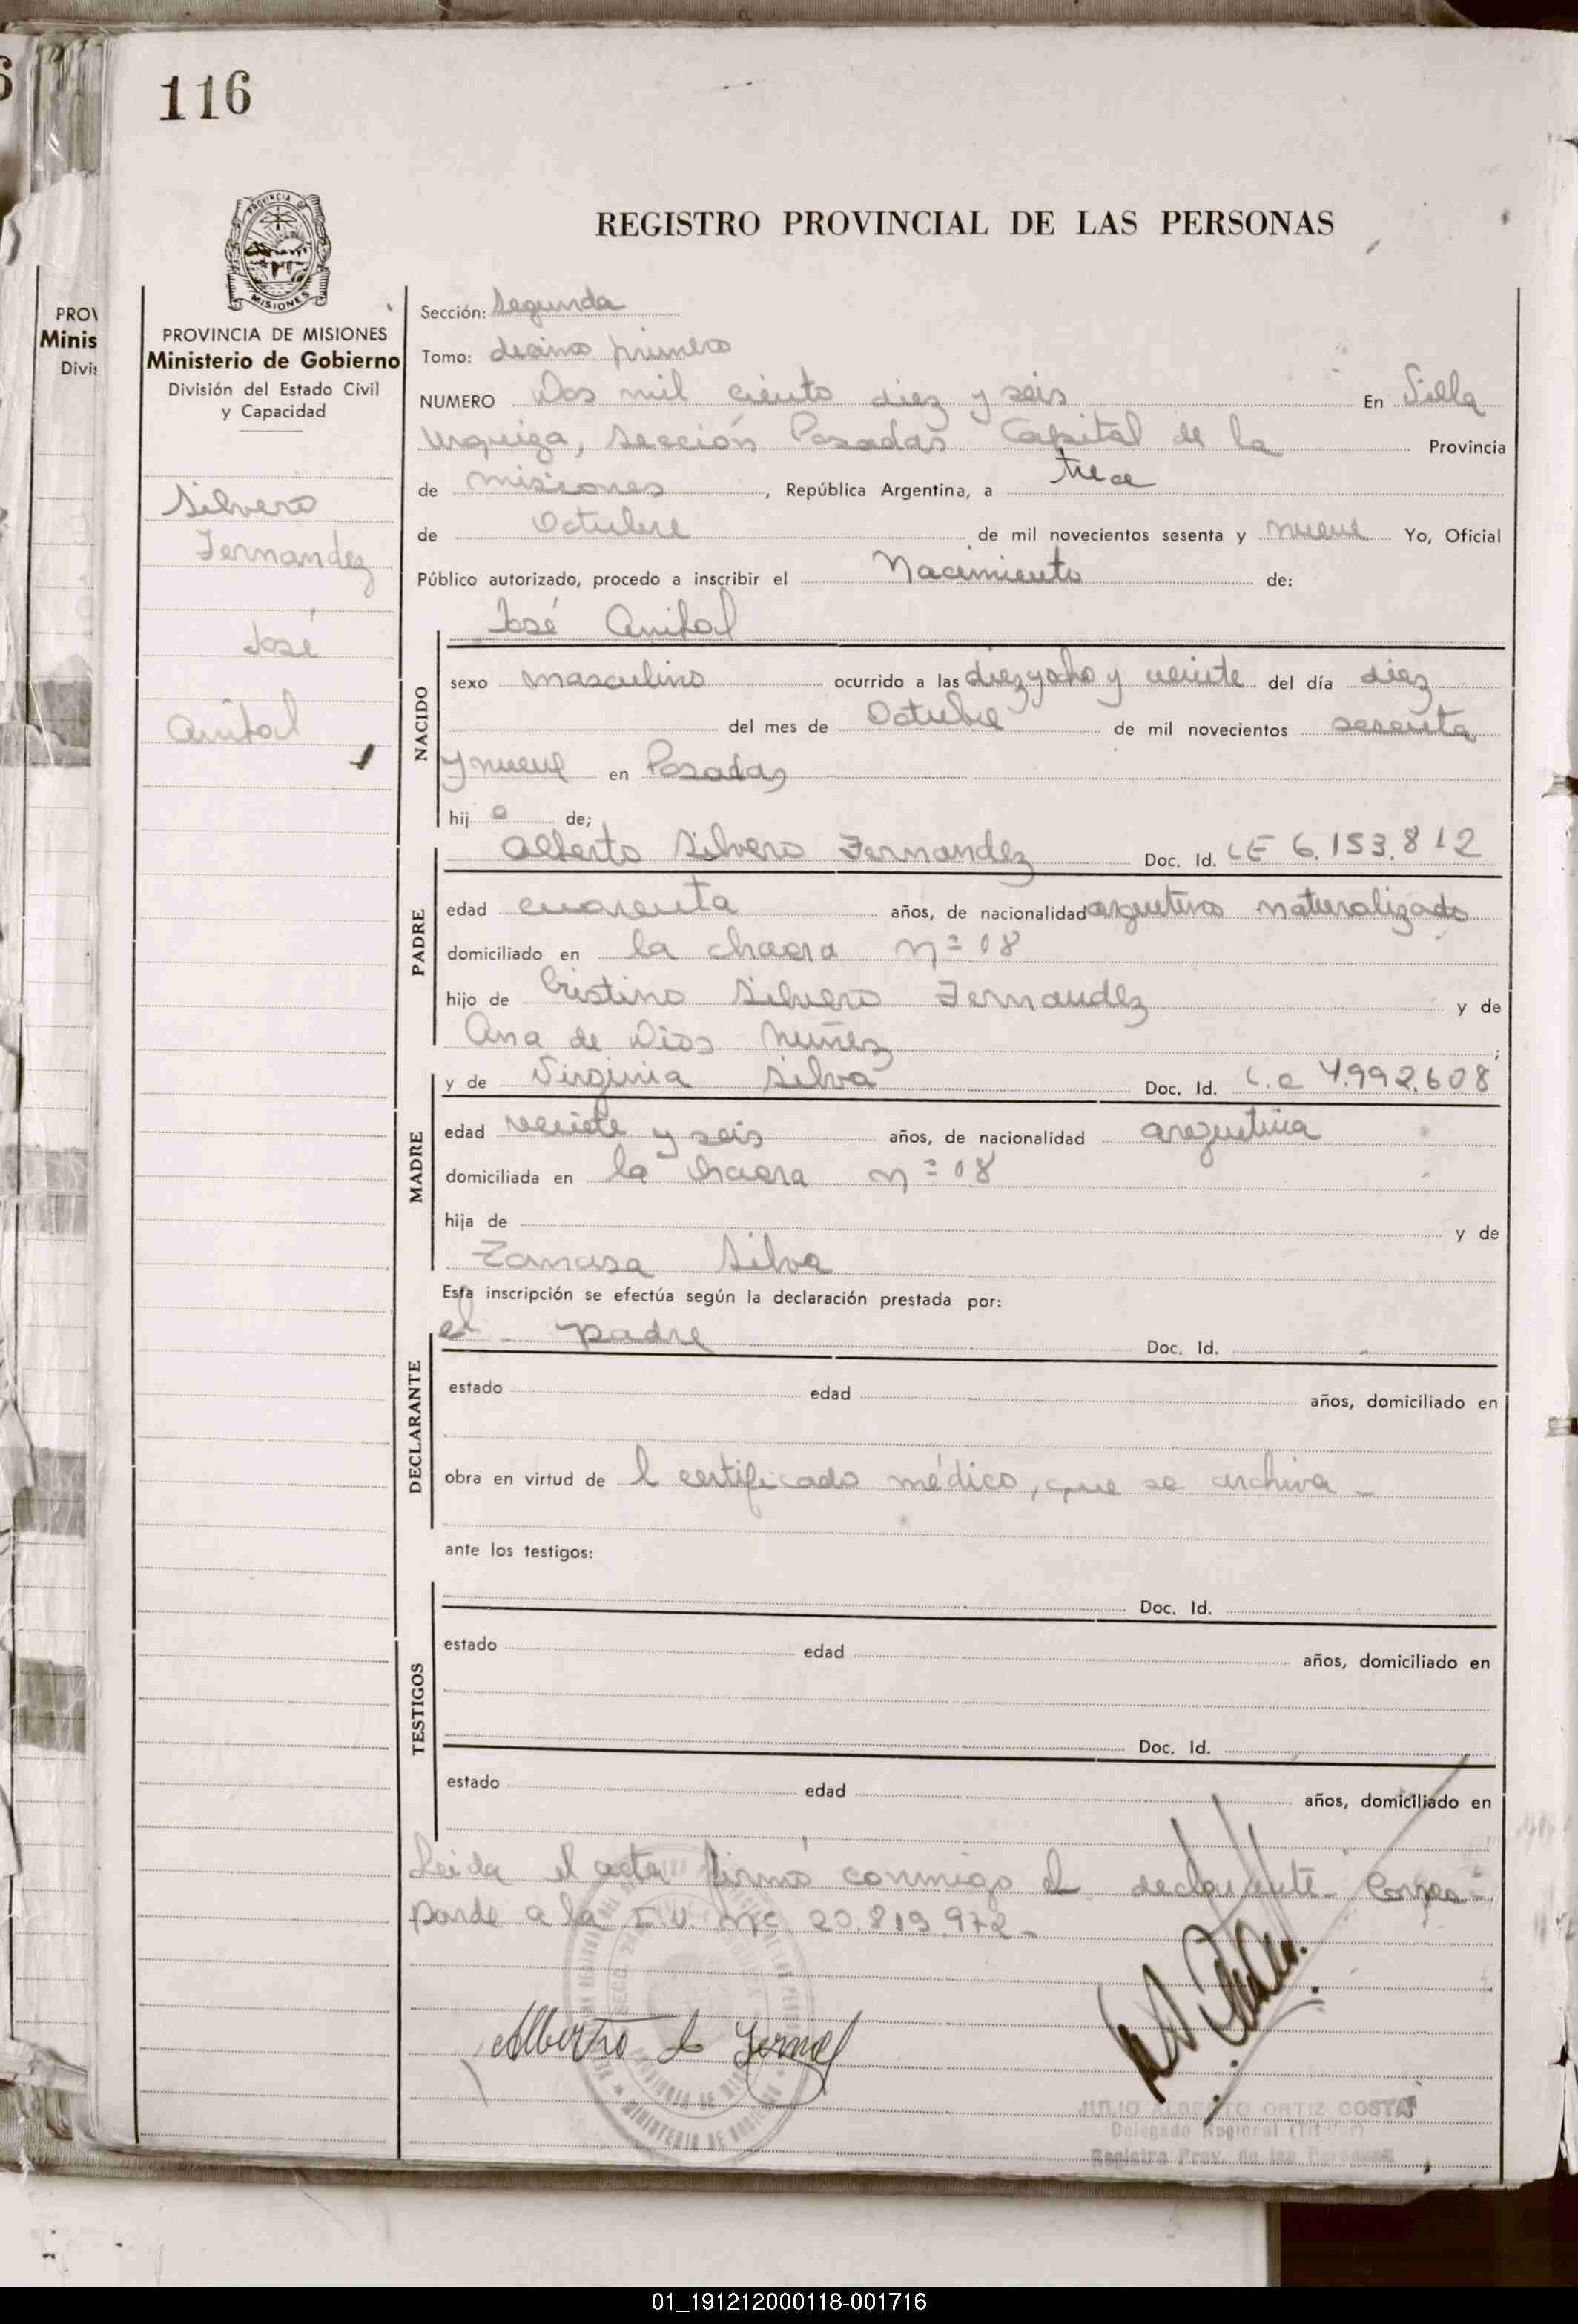 116
REGISTRO PROVINCIAL DE LAS PERSONAS
PROVINCIA DE MISIONES
Ministerio de Gobierno
División del Estado Civil
y Capacidad
Silvero
Fernandez
José
Anibal
Sección: Segunda
Tomo: decimo primero
NUMERO Dos mil ciento diez y seis En Villa
Urquiza, Sección Posadas Capital de la Provincia
de Misiones, República Argentina, a trece
de Octubre de mil novecientos sesenta y nueve Yo, Oficial
Público autorizado, procedo a inscribir el Nacimiento de:
José Anibal
NACIDO
sexo masculino ocurrido a las diezyocho y veinte del día diez
del mes de Octubre de mil novecientos sesenta
y nueve en Posadas
hijo de;
PADRE
Alberto Silvero Fernandez Doc. Id. LE 6.153.812
edad cuarenta años, de nacionalidad argentino naturalizado
domiciliado en la chacra nº 08
hijo de Cristino Silvero Fernandez y de
Ana de Dios Nuñez;
MADRE
y de Virginia Silva Doc. Id. L.C 4.992.608
edad veinte y seis años, de nacionalidad argentina
domiciliada en la chacra nº 08
hija de y de
Silva
Esta inscripción se efectúa según la declaración prestada por:
DECLARANTE
el padre Doc. Id.
estado edad años, domiciliado en
obra en virtud de l certificado médico, que se archiva -
ante los testigos:
TESTIGOS
Doc. Id.
estado edad años, domiciliado en
Doc. Id.
estado edad años, domiciliado en
Leida el acta firmó conmigo el declarante. Corres-
ponde a la nº 20.819.972 -
Alberto S Fernez
JULIO ALBERTO ORTIZ COSTA
Delegado Regional (Titular)
Registro Prov. de las Personas
PROV
Minis
Divis
01_191212000118-001716